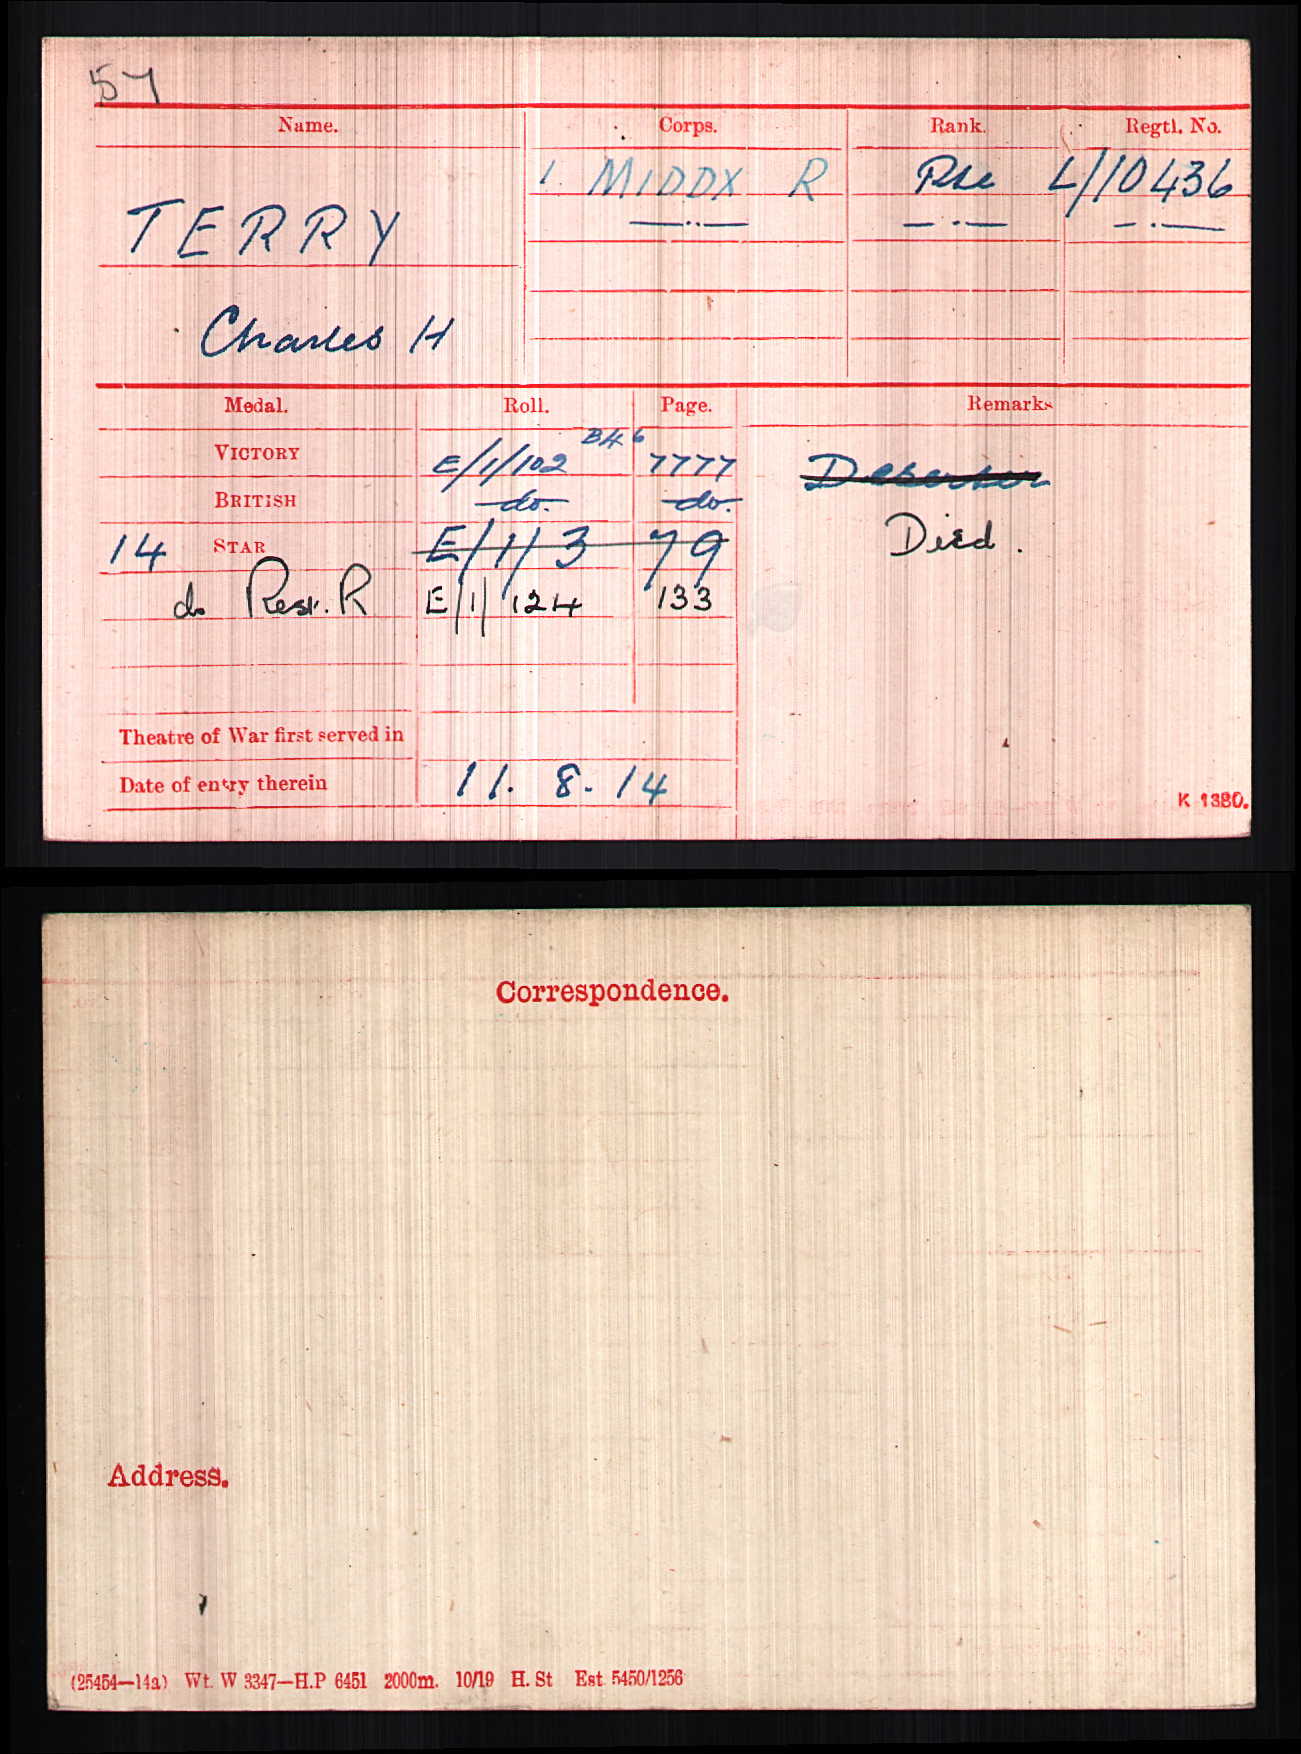 57
Name. Corps. Rank. Regtl. No.
1. MIDDX R Pte L/10436
TERRY —··— —·— —·—
Charles H
Medal. Roll. Page. Remarks
VICTORY E/1/102 B46 7777 Deserter
BRITISH do. do.
14 STAR E/1/3 79 Died.
do Resr. R E/1/124 133
Theatre of War first served in
Date of entry therein 11. 8. 14
K 1380.
Correspondence.
Address.
(25454—14a) Wt. W 3347—H.P 6451 2000m. 10/19 H. St Est. 5450/1256